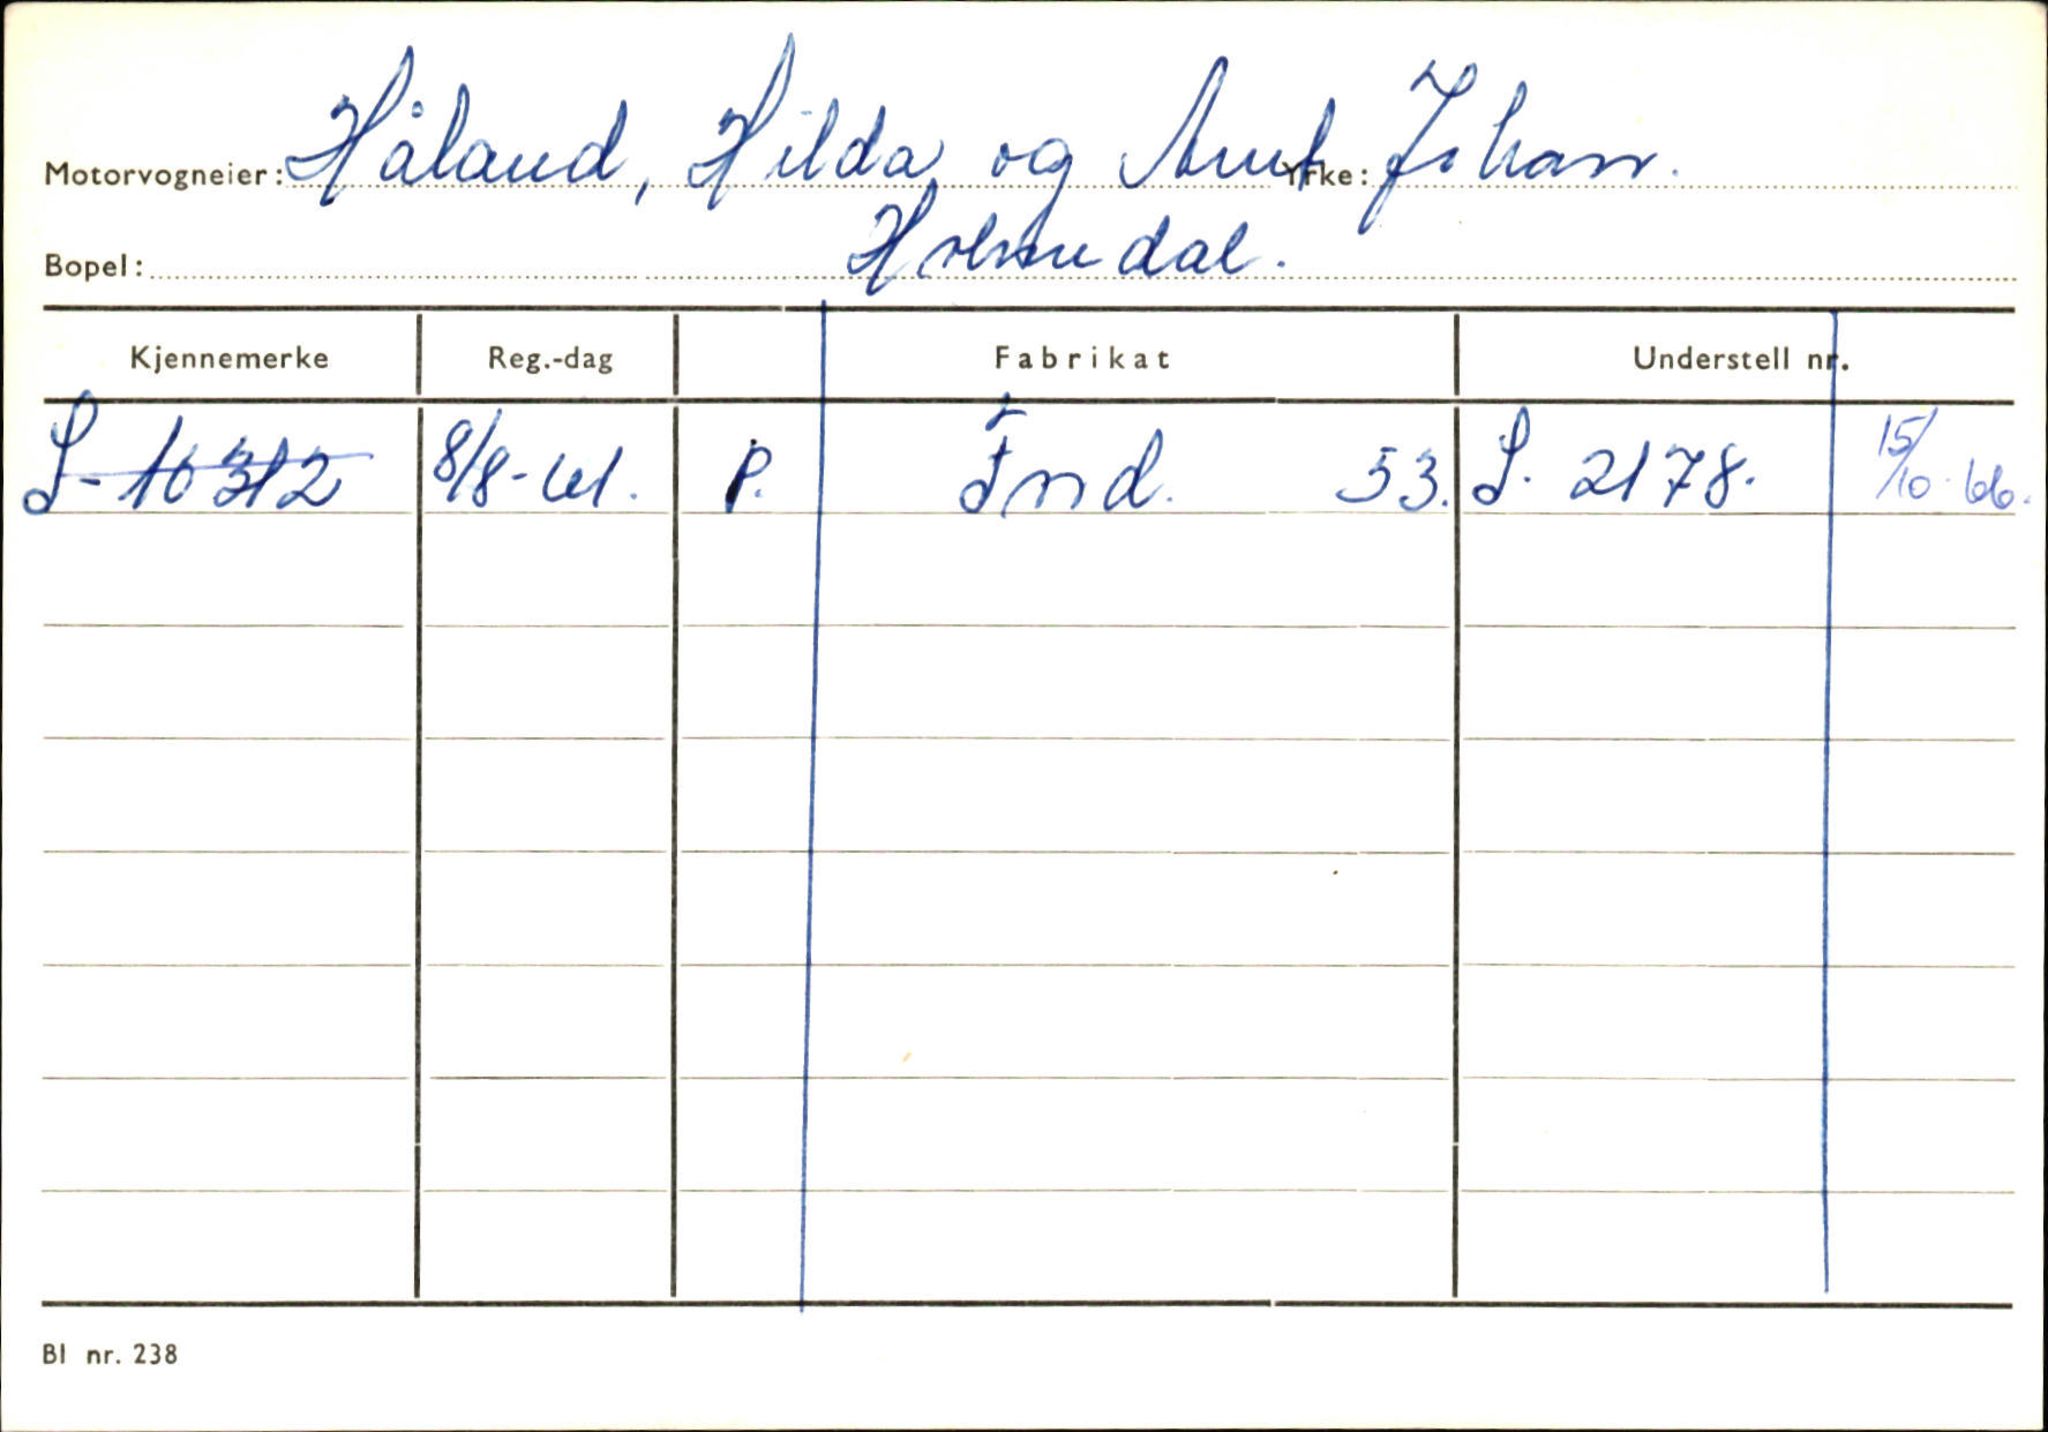 Motorvogneier: Håland, Hilda og Arnt Yrke: Johan.
Bopel: Holmedal.
Kjennemerke Reg.-dag Fabrikat Understell nr.
S-10312 8/8-61. P. Ford. 53. S. 2178. 15/10-66.
Bl nr. 238